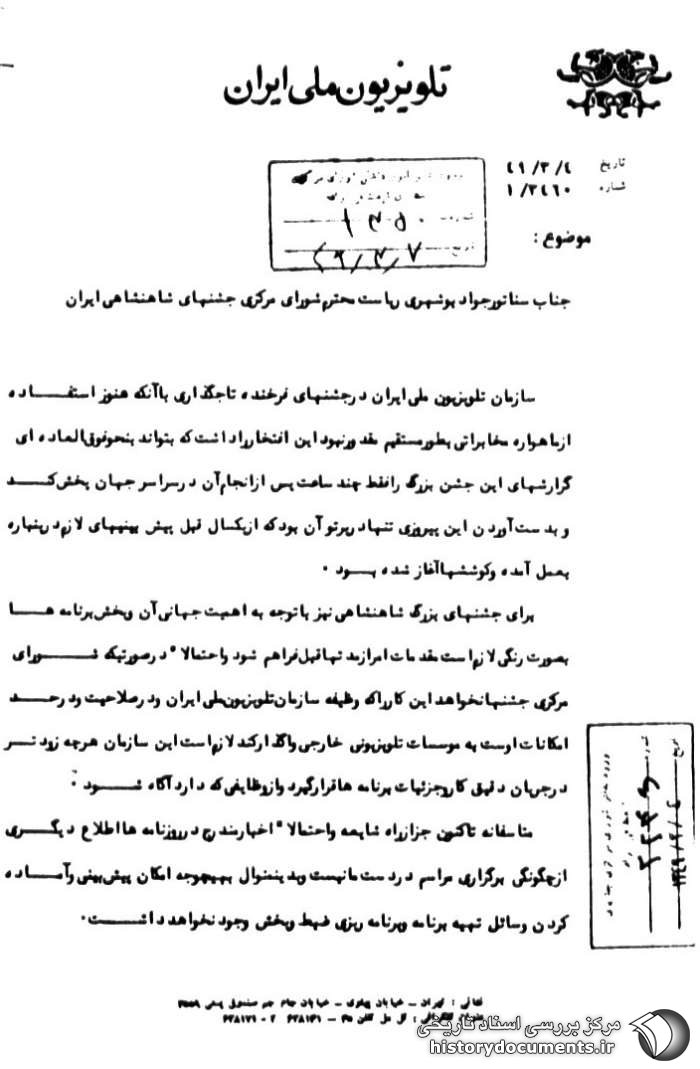 تلویزیون ملی ایران
تاریخ ٤٩/٣/٤
شماره ١/٣٤٦٠
شماره ١٣٥٠
تاریخ ٤٩/٣/٧
موضوع :
جناب سناتور جواد بوشهری ریاست محترم شورای مرکزی جشنهای شاهنشاهی ایران
سازمان تلویزیون ملی ایران درجشنهای فرخنده تاجگذاری باآنکه هنوز استفاده
ازماهواره مخابراتی بطورمستقیم مقدورنبود این افتخارراداشت که بتواند بنحوفوق العاده ای
گزارشهای این جشن بزرگ رافقط چند ساعت پس ازانجام آن درسراسرجهان پخش کند
و بدست آوردن این پیروزی تنهادرپرتوآن بودکه ازیکسال قبل پیش بینیهای لازم دراینباره
بعمل آمده وکوششهاآغاز شده بود .
برای جشنهای بزرگ شاهنشاهی نیز باتوجه به اهمیت جهانی آن وپخش برنامه ها
بصورت رنگی لازم است مقدمات امرازمدتهاقبل فراهم شود واحتمالا" درصورتیکه شورای
مرکزی جشنهانخواهد این کارراکه وظیفه سازمان تلویزیون ملی ایران ودرصلاحیت ودرحد
امکانات اوست به موسسات تلویزیونی خارجی واگذارکند لازم است این سازمان هرچه زودتر
درجریان دقیق کاروجزئیات برنامه هاقرارگیرد وازوظایفی که دارد آگاه شود .
متاسفانه تاکنون جزازراه شایعه واحتمالا" اخبارمندرج درروزنامه هااطلاع دیگری
ازچگونگی برگزاری مراسم دردست مانیست وبدینمنوال بهیچوجه امکان پیش بینی وآماده
کردن وسائل تهیه برنامه وبرنامه ریزی ضبط وپخش وجود نخواهد داشت .
شماره
تاریخ ١٣٤٩/٣/٤
نشانی : تهران - خیابان پهلوی - خیابان جام جم صندوق پستی
مرکز بررسی اسناد تاریخی
historydocuments.ir